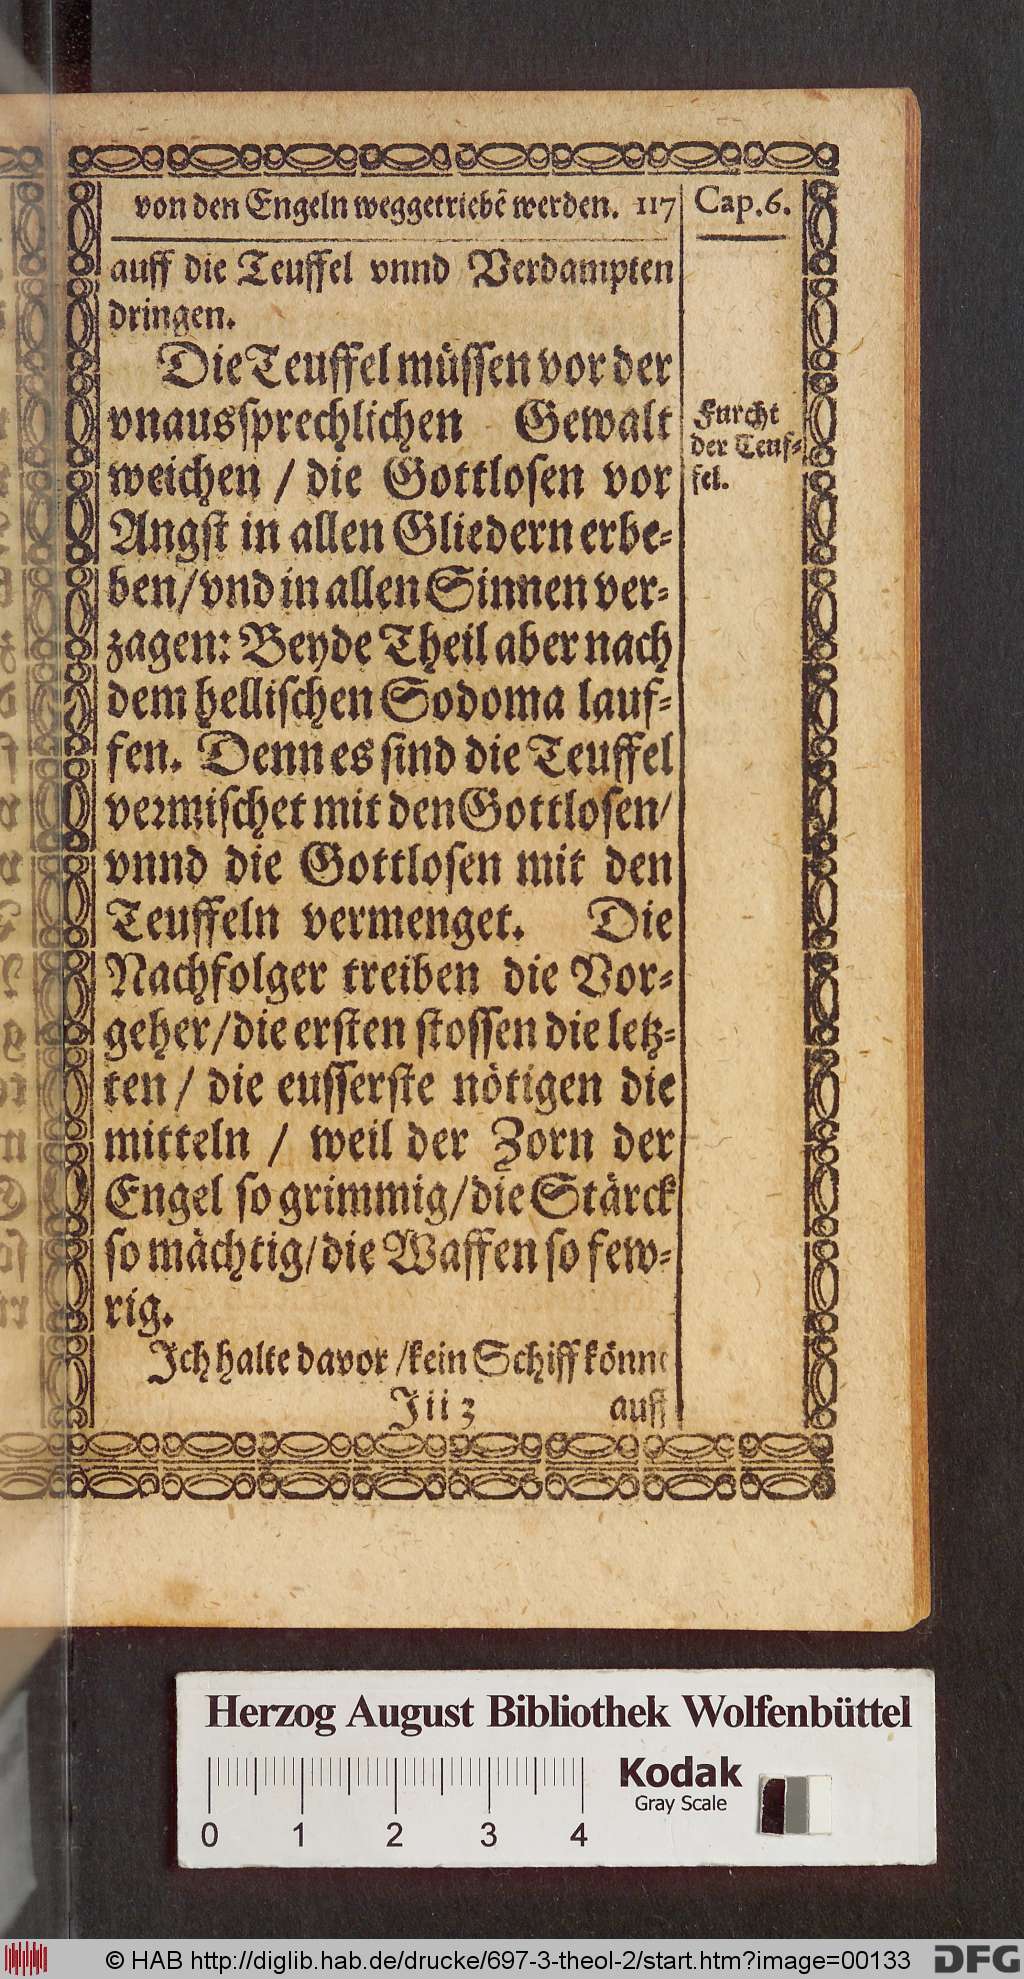 von den Engeln weggetriebẽ werden. 117
Cap. 6.
auff die Teuffel vnnd Verdampten
dringen.
Die Teuffel müssen vor der
vnaussprechlichen Gewalt
weichen / die Gottlosen vor
Angst in allen Gliedern erbe-
ben / vnd in allen Sinnen ver-
zagen: Beyde Theil aber nach
dem hellischen Sodoma lauf-
fen. Denn es sind die Teuffel
vermischet mit den Gottlosen /
vnnd die Gottlosen mit den
Teuffeln vermenget. Die
Nachfolger treiben die Vor-
geher / die ersten stossen die letz-
ten / die eusserste nötigen die
mitteln / weil der Zorn der
Engel so grimmig / die Stärck
so mächtig / die Waffen so few-
rig.
Ich halte davor / kein Schiff könne
Jii 3 auff
Furcht
der Teuf-
fel.
Herzog August Bibliothek Wolfenbüttel
Kodak
Gray Scale
0 1 2 3 4
© HAB http://diglib.hab.de/drucke/697-3-theol-2/start.htm?image=00133
DFG